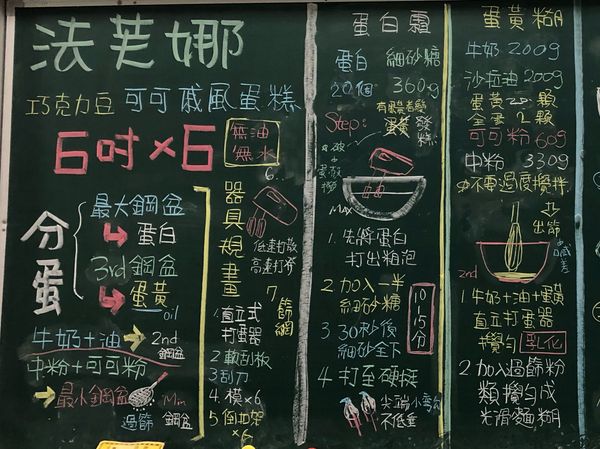 法芙娜
巧克力豆 可可戚風蛋糕
6吋×6
無油
無水
分蛋
最大鋼盆
蛋白
3rd鋼盆
蛋黃
oil
牛奶+油
2nd
鋼盆
中粉+可可粉
最小鋼盆
Min
過篩 鋼盆
器具規畫
1.直立式
打蛋器
2.軟刮板
3.刮刀
4.模×6
5.倒扣架
×6
6.
低速打散
高速打發
7.篩網
蛋白霜
蛋白 細砂糖
20個 360g
Step:
蛋黃
MAX
1.先將蛋白
打出粗泡
2.加入一半
細砂糖
3.30秒後
細砂全下
10-15分
4.打至硬挺
尖端小彎勾
不低垂
蛋黃糊
牛奶 200g
沙拉油 200g
蛋黃 20顆
全蛋 2顆
可可粉 60g
中粉 330g
不要過度攪拌
出筋
2nd
1.牛奶+油+蛋黃
直立打蛋器
攪勻 乳化
2.加入過篩粉
類攪勻成
光滑麵糊